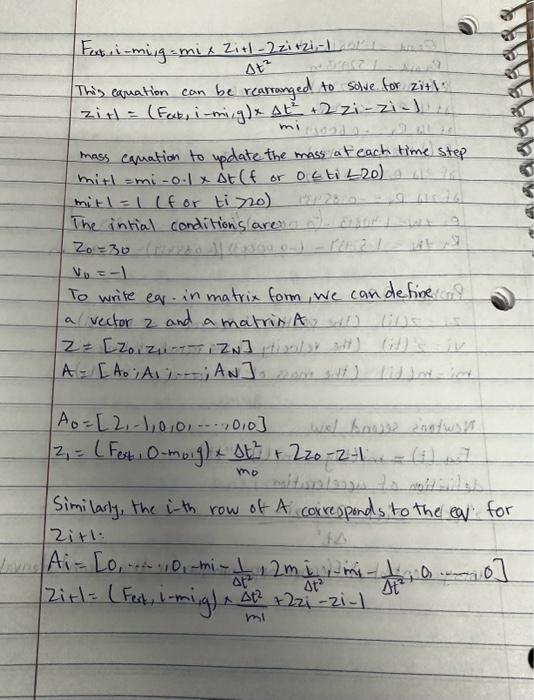 Fext, i-mi,g = mi x zi+1-2zi+zi-1
Δt²
This equation can be rearranged to solve for zi+1:
zi+1 = (Fext, i-mi,g) x Δt² + 2 zi - zi-1
mi
mass equation to update the mass at each time step
mi+1 = mi - 0.1 x Δt (for 0 ≤ ti ≤ 20)
mi+1 = 1 (for ti > 20)
The intial conditions are:
Z0 = 30
V0 = -1
To write eq. in matrix form, we can define
a vector z and a matrix A
Z = [Z0, Z1, ----, ZN]
A = [A0; A1; ---; AN]
A0 = [2, -1, 0, 0, ----, 0, 0]
Z1 = (Fext, 0-m0,g) x Δt² + 2z0 - z-1
m0
Similarly, the i-th row of A corresponds to the eq for
Zi+1:
Ai = [0, ----, 0, -mi - 1/Δt², 2mi/Δt², -mi - 1/Δt², 0 ----, 0]
Zi+1 = (Fext, i-mi,g) x Δt² + 2zi - zi-1
mi